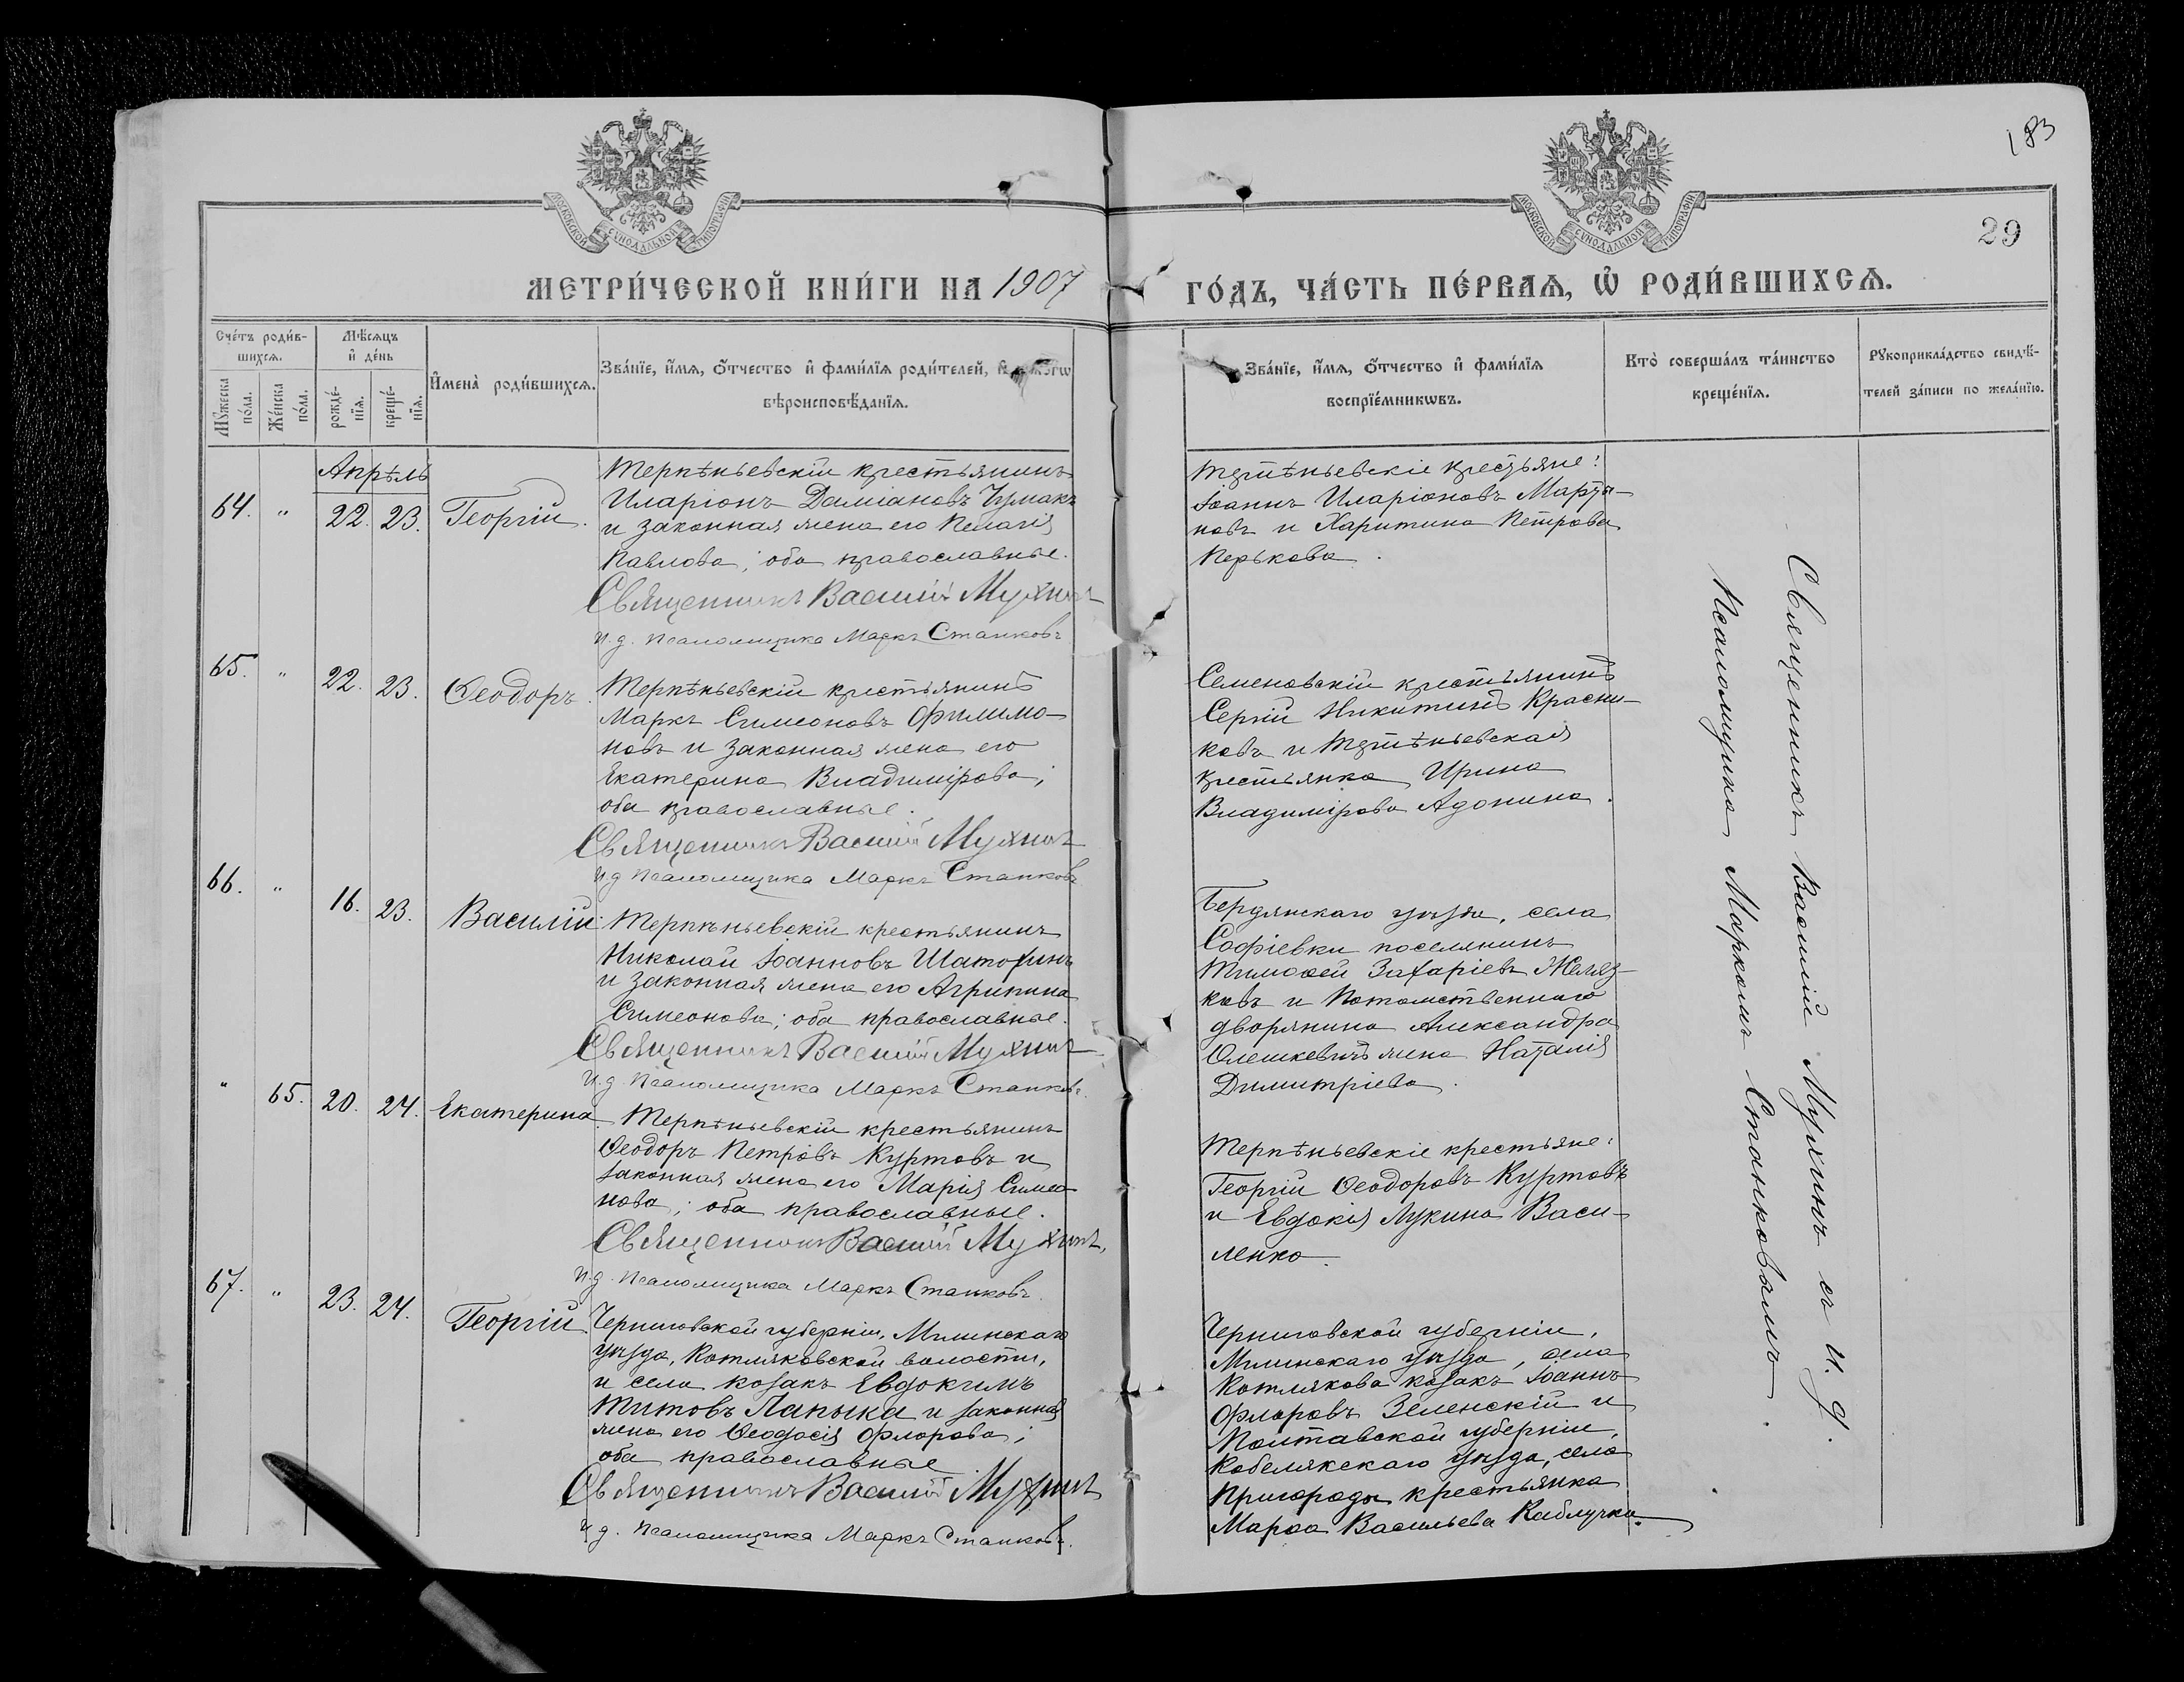 183
29
МОСКОВСКОЙ СѴНОДАЛЬНОЙ ТИПОГРАФІИ
МОСКОВСКОЙ СѴНОДАЛЬНОЙ ТИПОГРАФІИ
МЕТРИ́ЧЕСКОЙ КНИ́ГИ НА 1907 ГО́ДЪ, ЧА́СТЬ ПЕ́РВАѦ, Ѡ҆ РОДИ́ВШИХСѦ.
Сче́тъ роди́в-
шихсѧ.
Мꙋ́жеска
по́ла.
Же́нска
по́ла.
Мѣ́сѧцъ
и҆ де́нь
рожде́-
нїѧ.
креще́-
нїѧ.
И҆мена̀ роди́вшихсѧ.
Зва́нїе, и҆́мѧ, ѻ҆́тчество и҆ фами́лїѧ роди́телей, и҆
вѣроисповѣ́данїѧ.
Зва́нїе, и҆́мѧ, ѻ҆́тчество и҆ фами́лїѧ
воспрїе́мникѡвъ.
Кто̀ соверша́лъ та́инство
креще́нїѧ.
Рꙋкоприкла́дство свидѣ́-
телей за́писи по жела́нїю.
Апрѣль
64. „ 22. 23. Георгій.
Терпѣньевскій крестьянинъ
Иларіонъ Даміановъ Чумакъ
и законная жена его Пелагія
Павлова; оба православные.
Священникъ Василій Мухинъ
и. д. псаломщика Маркъ Станковъ
Терпѣньевскіе крестьяне:
Іоаннъ Иларіоновъ Марты-
новъ и Харитина Петрова
Перькова.
65. „ 22. 23. Ѳеодоръ.
Терпѣньевскій крестьянинъ
Маркъ Симеоновъ Филимо-
новъ и законная жена его
Екатерина Владимірова;
оба православные.
Священникъ Василій Мухинъ
и. д. псаломщика Маркъ Станковъ
Семеновскій крестьянинъ
Сергій Никитинъ Красни-
ковъ и Терпѣньевская
крестьянка Ирина
Владимірова Адонина.
66. „ 16. 23. Василій.
Терпѣньевскій крестьянинъ
Николай Іоанновъ Шатохинъ
и законная жена его Агрипина
Симеонова; оба православные.
Священникъ Василій Мухинъ
и. д. псаломщика Маркъ Станковъ.
Бердянскаго уѣзда, села
Софіевки поселянинъ
Тимоѳей Захаріевъ Желяз-
ковъ и Потомственнаго
дворянина Александра
Олешкевичъ жена Наталія
Димитріева.
„ 65. 20. 24. Екатерина.
Терпѣньевскій крестьянинъ
Ѳеодоръ Петровъ Куртовъ и
законная жена его Марія Симео-
нова; оба православные.
Священникъ Василій Мухинъ,
и. д. псаломщика Маркъ Станковъ.
Терпѣньевскіе крестьяне:
Георгій Ѳеодоровъ Куртовъ
и Евдокія Лукина Васи-
ленко.
67. „ 23. 24. Георгій
Черниговской губерніи, Мглинскаго
уѣзда, Котляковской волости,
и села козакъ Евдокимъ
Титовъ Лапыка и законная
жена его Ѳеодосія Флорова;
оба православные
Священникъ Василій Мухинъ
и. д. псаломщика Маркъ Станковъ.
Черниговской губерніи,
Мглинскаго уѣзда, села
Котлякова козакъ Іоаннъ
Флоровъ Зеленскій и
Полтавской губерніи,
Кобелякскаго уѣзда, села
Пригорода крестьянка
Марѳа Васильева Каблучка.
Священникъ Василій Мухинъ съ и. д.
Псаломщика Маркомъ Станковымъ.